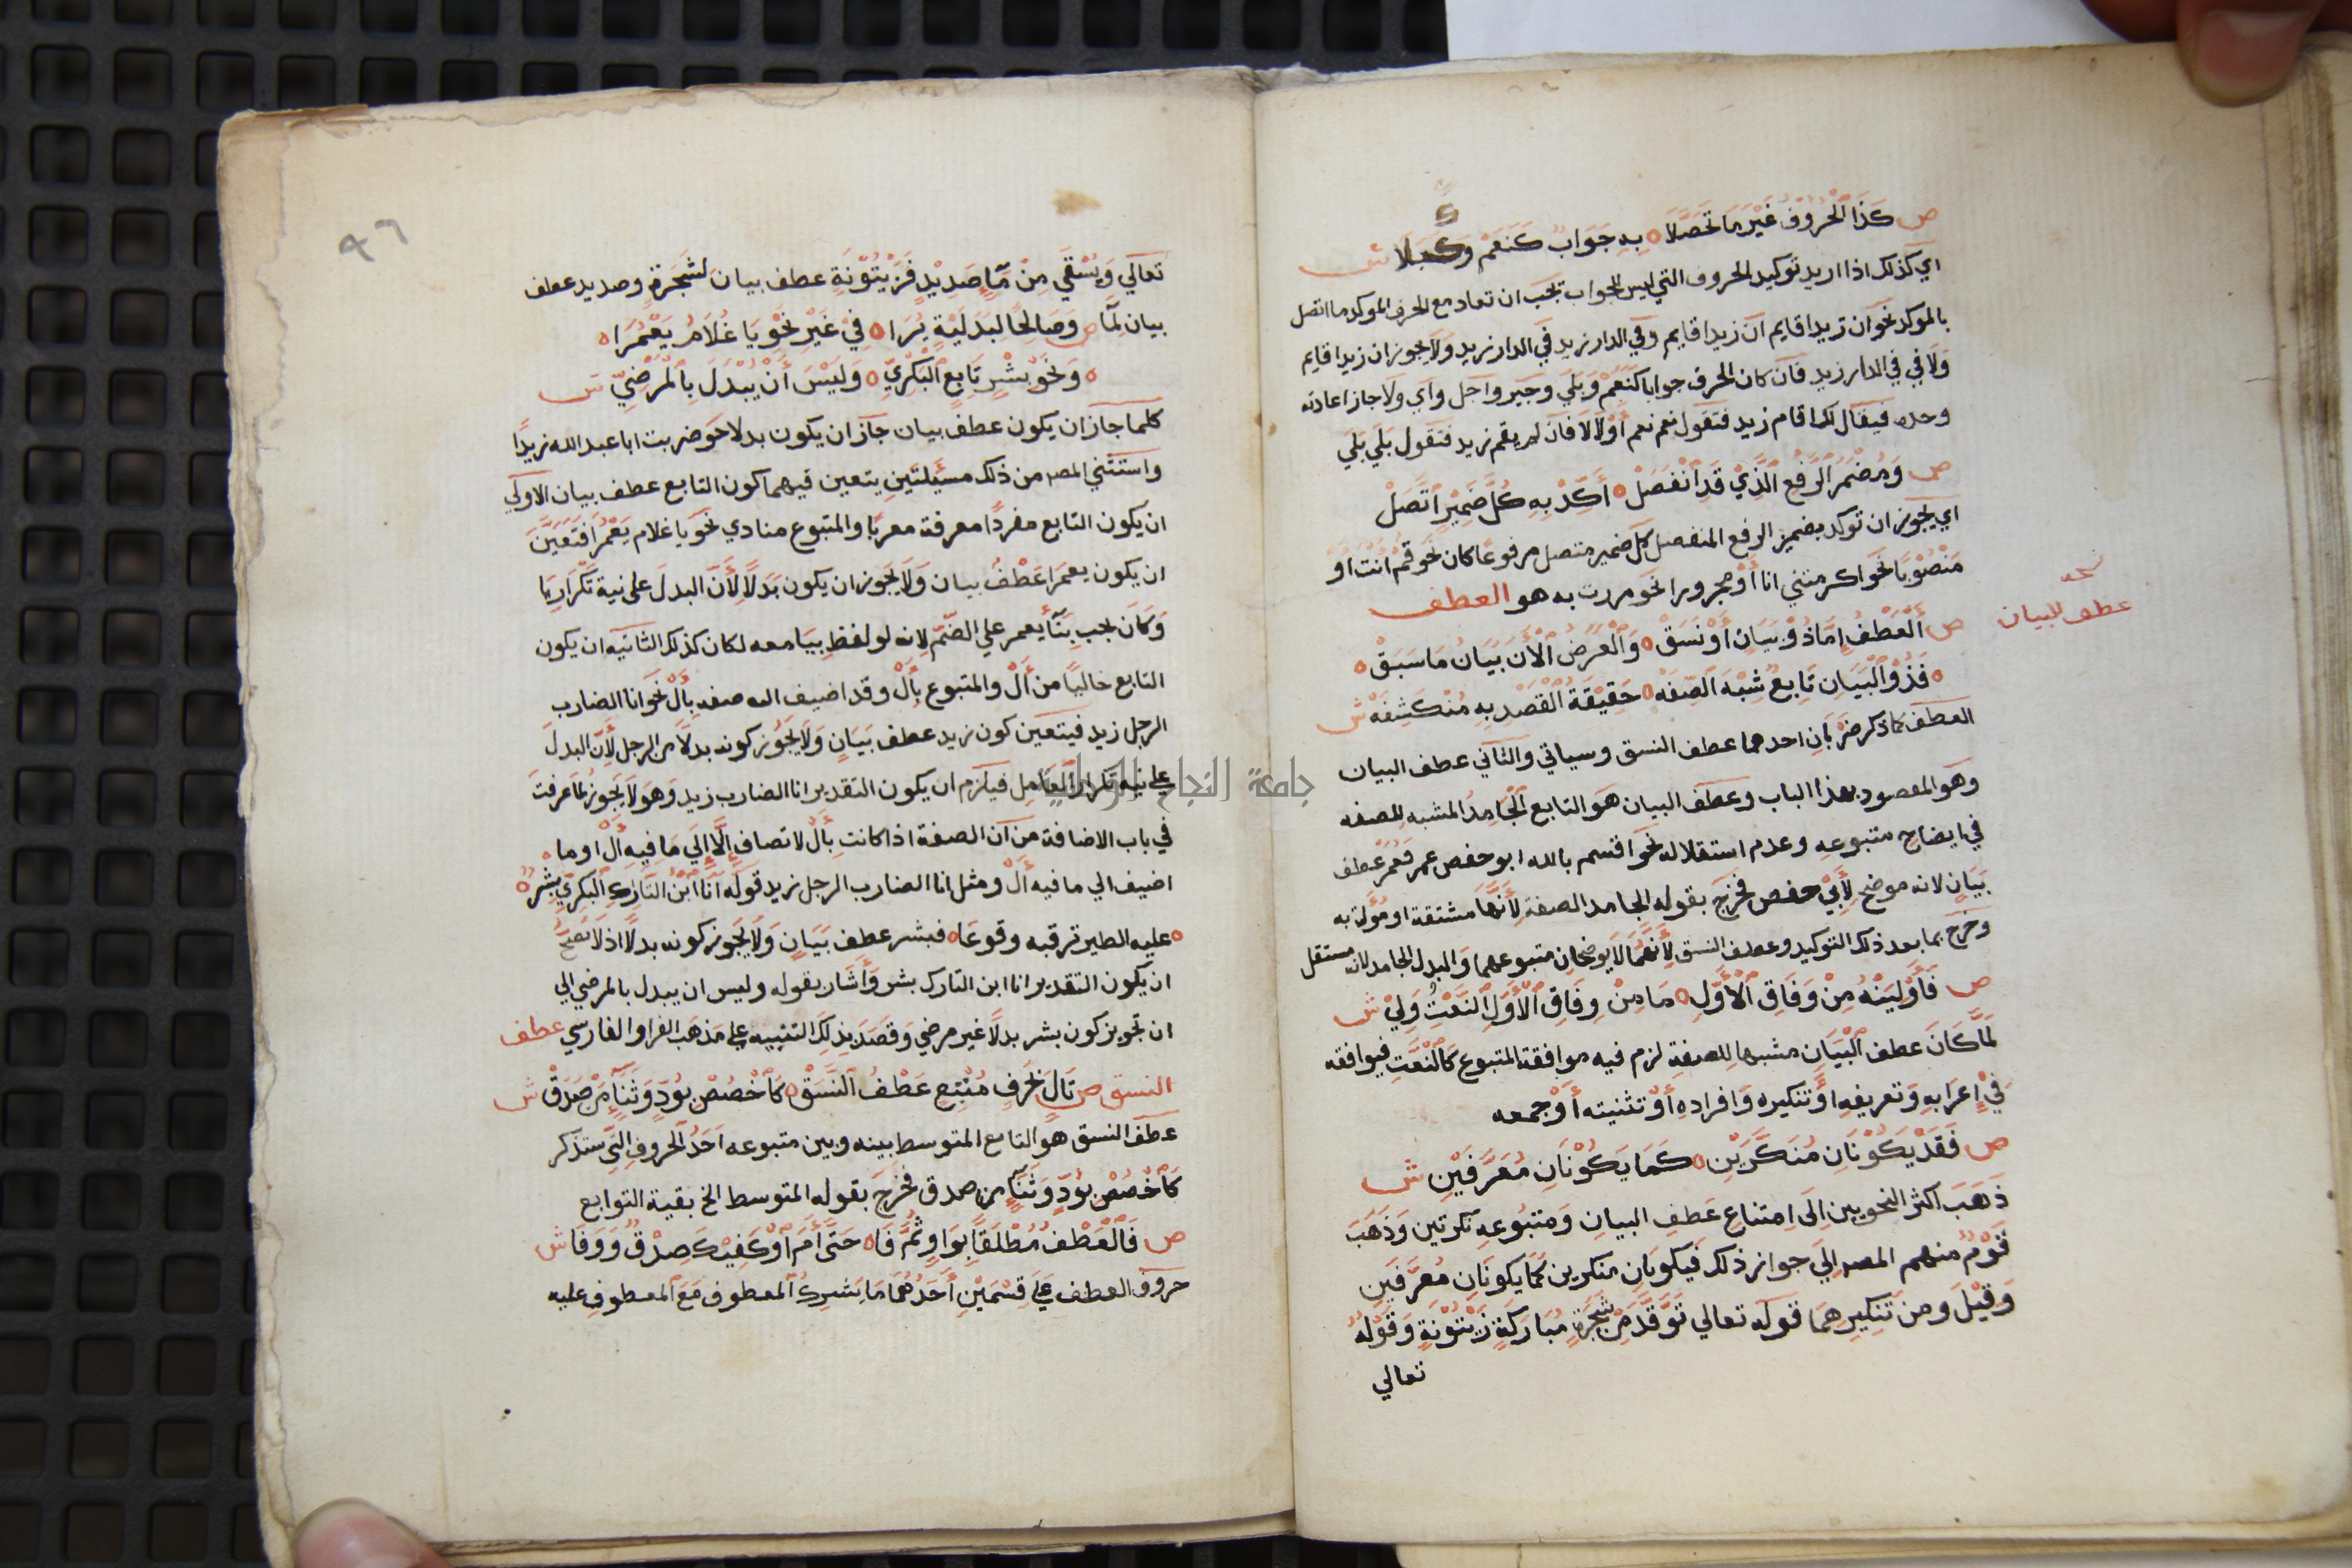 ص كَذَا الْحُرُوفُ غَيْرَ مَا تَحَصَّلَا ه بِهِ جَوَابٌ كَنَعَمْ وَكَبَلَا ش
اي كذلك اذا اريد توكيد الحروف التي ليس للجواب يجب ان تعاد مع الحرف الموكد ما اتصل
بالموكد نحو ان زيدا قايم ان زيدا قايم وفي الدار زيد في الدار زيد ولا يجوز ان زيدا قايم
ولا في في الدار زيد فان كان الحرف جوابا كنعم وبلي وجير واجل واي ولا جاز اعادته
وحده فيقال لك اقام زيد فتقول نعم نعم أولا لا فان لم يقم زيد فتقول بلي بلي
ص وَمُضْمَرُ الرَّفْعِ الَّذِيْ قَدِ انْفَصَلْ ه أَكِّدْ بِهِ كُلَّ ضَمِيْرٍ اتَّصَلْ
اي يجوز ان توكد بضمير الرفع المنفصل كل ضمير متصل مرفوعا كان نحو قم انت او
منصوبا نحو اكرمتني انا أو مجرورا نحو مررت به هو العطف
نسخه
عطف البيان
ص أَلْعَطْفُ إِمَّا ذُوْ بَيَانٍ أَوْ نَسَقْ ه وَالْغَرَضُ الْأَنَ بَيَانُ مَا سَبَقْ ه
ه فَذُوْ الْبَيَانِ تَابِعٌ شِبْهُ الصِّفَهْ ه حَقِيْقَةُ الْقَصْدِ بِهِ مُنْكَشِفَهْ ش
العطف كما ذكر ضربان احدهما عطف النسق وسياتي والثاني عطف البيان
وهو المقصود بهذا الباب وعطف البيان هو التابع الجامد المشبه للصفه
في ايضاح متبوعه وعدم استقلاله نحو اقسم بالله ابو حفص عمر فعمر عطف
بيان لانه موضح لأبي حفص فخرج بقوله الجامد الصفة لأنها مشتقة او مؤلة به
وخرج بما بعد ذلك التوكيد وعطف النسق لأنهما لا يوضحان متبوعهما والبدل الجامد لانه مستقل
ص فَأَوْلِيَنْهُ مِنْ وِفَاقِ الْأَوَّلِ ه مَا مِنْ وِفَاقِ الْأَوَّلِ النَّعْتُ وَلِيْ ش
لمّا كان عطف البيان مشبها للصفة لزم فيه موافقة المتبوع كالنعت فيوافقه
في إعرابه وتعريفه أو تنكيره وافراده أو تثنيته أو جمعه
ص فَقَدْ يَكُوْنَانِ مُنَكَّرَيْنِ ه كَمَا يَكُوْنَانِ مُعَرَّفَيْنِ ش
ذهب اكثر النحويين إلى امتناع عطف البيان ومتبوعه نكرتين وذهب
قوم منهم المصـ إلي جواز ذلك فيكونان منكرين كما يكونان معرفين
وقيل ومن تنكيرهما قوله تعالي توقد من شجرة مباركة زيتونة وقوله
تعالي
٩٦
تعالي ويسقي من ماءٍ صديد فزيتونة عطف بيان لشجرة وصديد عطف
بيان لما ص وَصَالِحًا لِبَدَلِيَّةٍ يُرَا ه فِيْ غَيْرِ نَحْوِ يَا غُلَامُ يَعْمُرَا ه
ه وَنَحْوِ بِشْرٍ تَابِعِ الْبَكْرِيِّ ه وَلَيْسَ أَنْ يُبْدَلَ بِالْمَرْضِيِّ ش
كلما جاز ان يكون عطف بيان جاز ان يكون بدلا نحو ضربت ابا عبد الله زيدًا
واستثني المصـ من ذلك مسئلتين يتعين فيهما كون التابع عطف بيان الاولي
ان يكون التابع مفردًا معرفة معربًا والمتبوع منادي نحو يا غلام يعمر افتعين
ان يكون يعمرا عطف بيان ولا يجوز ان يكون بدلا لأن البدل على نية تكرار يا
وكان يجب بنآ يعمر علي الضم لانه لو لفظ بيا معه لكان كذلك الثانيه ان يكون
التابع خاليا من أل والمتبوع بأل وقد اضيف اليه صفه بأل نحو انا الضارب
الرجل زيد فيتعين كون زيد عطف بيان ولا يجوز كونه بدلا من الرجل لأن البدل
علي نية تكرار العامل فيلزم ان يكون التقدير انا الضارب زيد وهو لا يجوز لما عرفت
في باب الاضافة من ان الصفة اذا كانت بأل لا تضاف إلا إلي ما فيه أل او ما ه
اضيف الي ما فيه أل ومثل انا الضارب الرجل زيد قوله أنا ابن التارك البكري بشر ه
ه عليه الطير ترقبه وقوعا ه فبشر عطف بيان ولا يجوز كونه بدلا اذ لا يصح
ان يكون التقدير انا ابن التارك بشر وأشار بقوله وليس ان يبدل بالمرضي الي
ان تجويز كون بشر بدلا غير مرضي وقصد بذلك التنبيه علي مذهب الفرا والفارسي عطف
النسق ص تَالٍ بِحَرْفٍ مُتْبِعٍ عَطْفُ النَّسَقْ ه كَاخْصُصْ بِوُدٍّ وَثَنَاءٍ مَنْ صَدَقْ ش
عطف النسق هو التابع المتوسط بينه وبين متبوعه احد الحروف التي ستذكر
كاخصص بود وثنآءٍ من صدق فخرج بقوله المتوسط الخ بقية التوابع
ص فَالْعَطْفُ مُطْلَقًا بِوَاوٍ ثُمَّ فَا ه حَتَّى أَمَ اوْ كَفِيْكَ صِدْقٌ وَوَفَا ش
حروف العطف علي قسمين أحدهما ما يشرك المعطوف مع المعطوف عليه
جامعة النجاح الوطنية